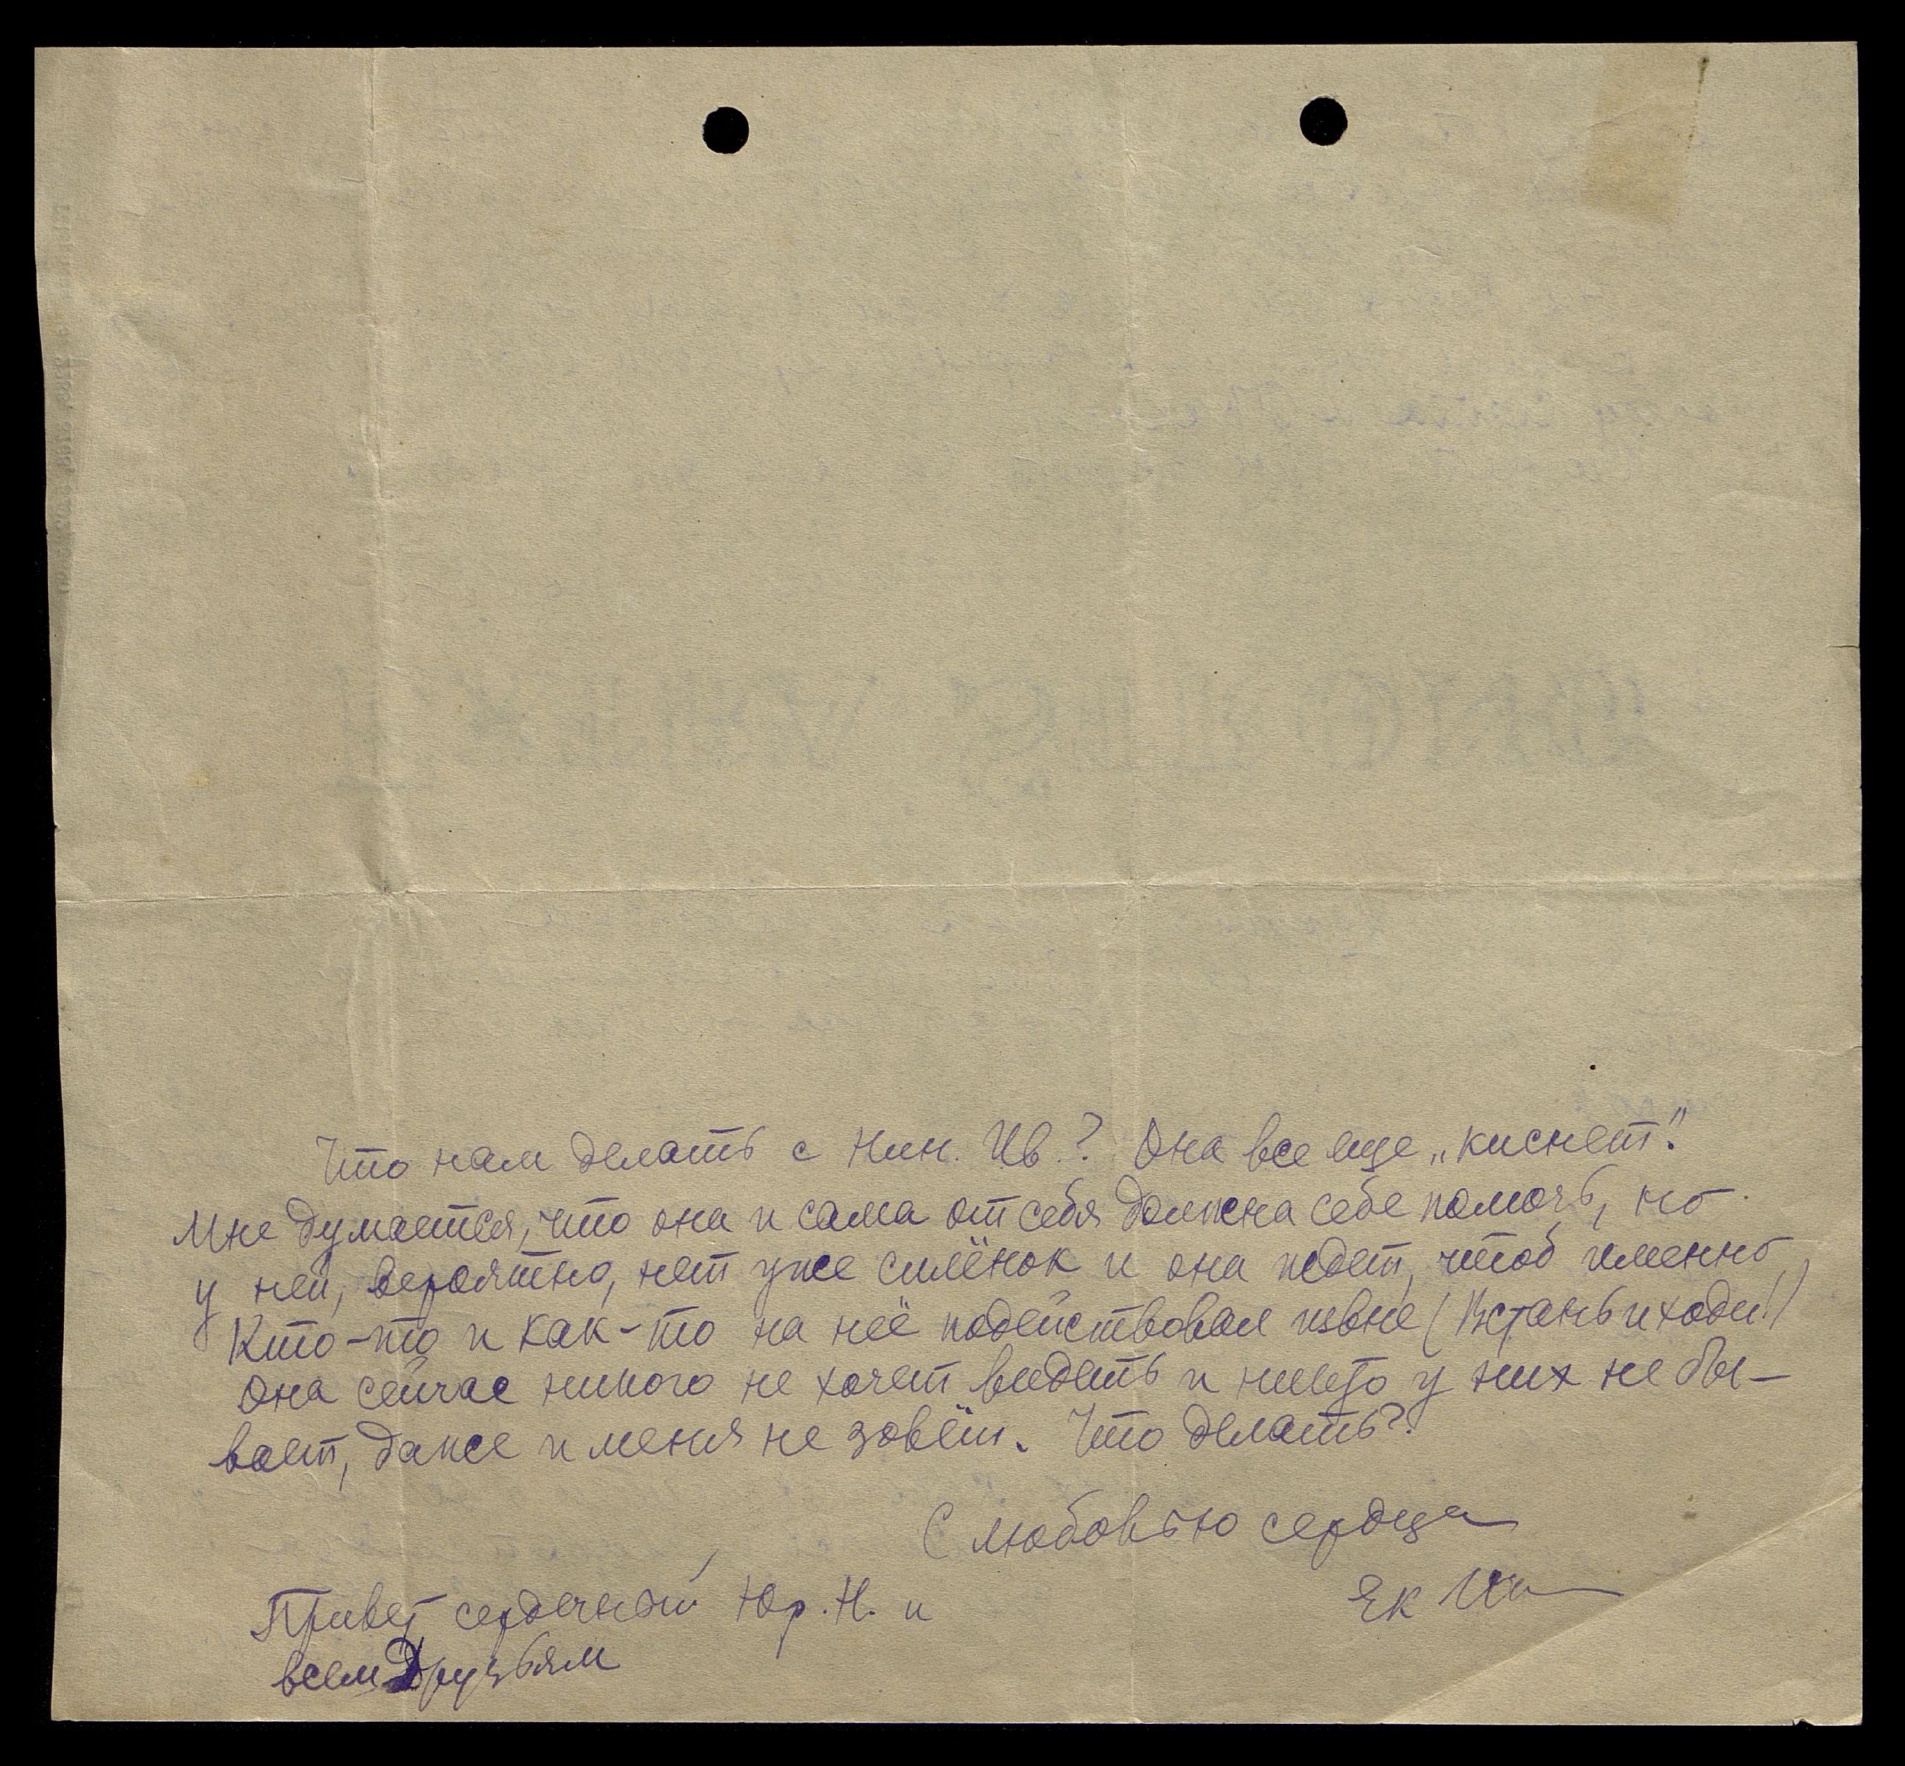 Что нам делать с Нин. Ив.? Она все еще „киснет".
Мне думается, что она и сама от себя должна себе помочь, но
у ней, вероятно, нет уже силёнок и она ждет, чтоб именно
Кто-то и как-то на неё подействовал извне (Встань и ходи!)
Она сейчас никого не хочет видеть и никто у них не бы-
вает, даже и меня не зовёт. Что делать?
С любовью сердца
Ек
Привет сердечный Юр. Н. и
всем Друзьям